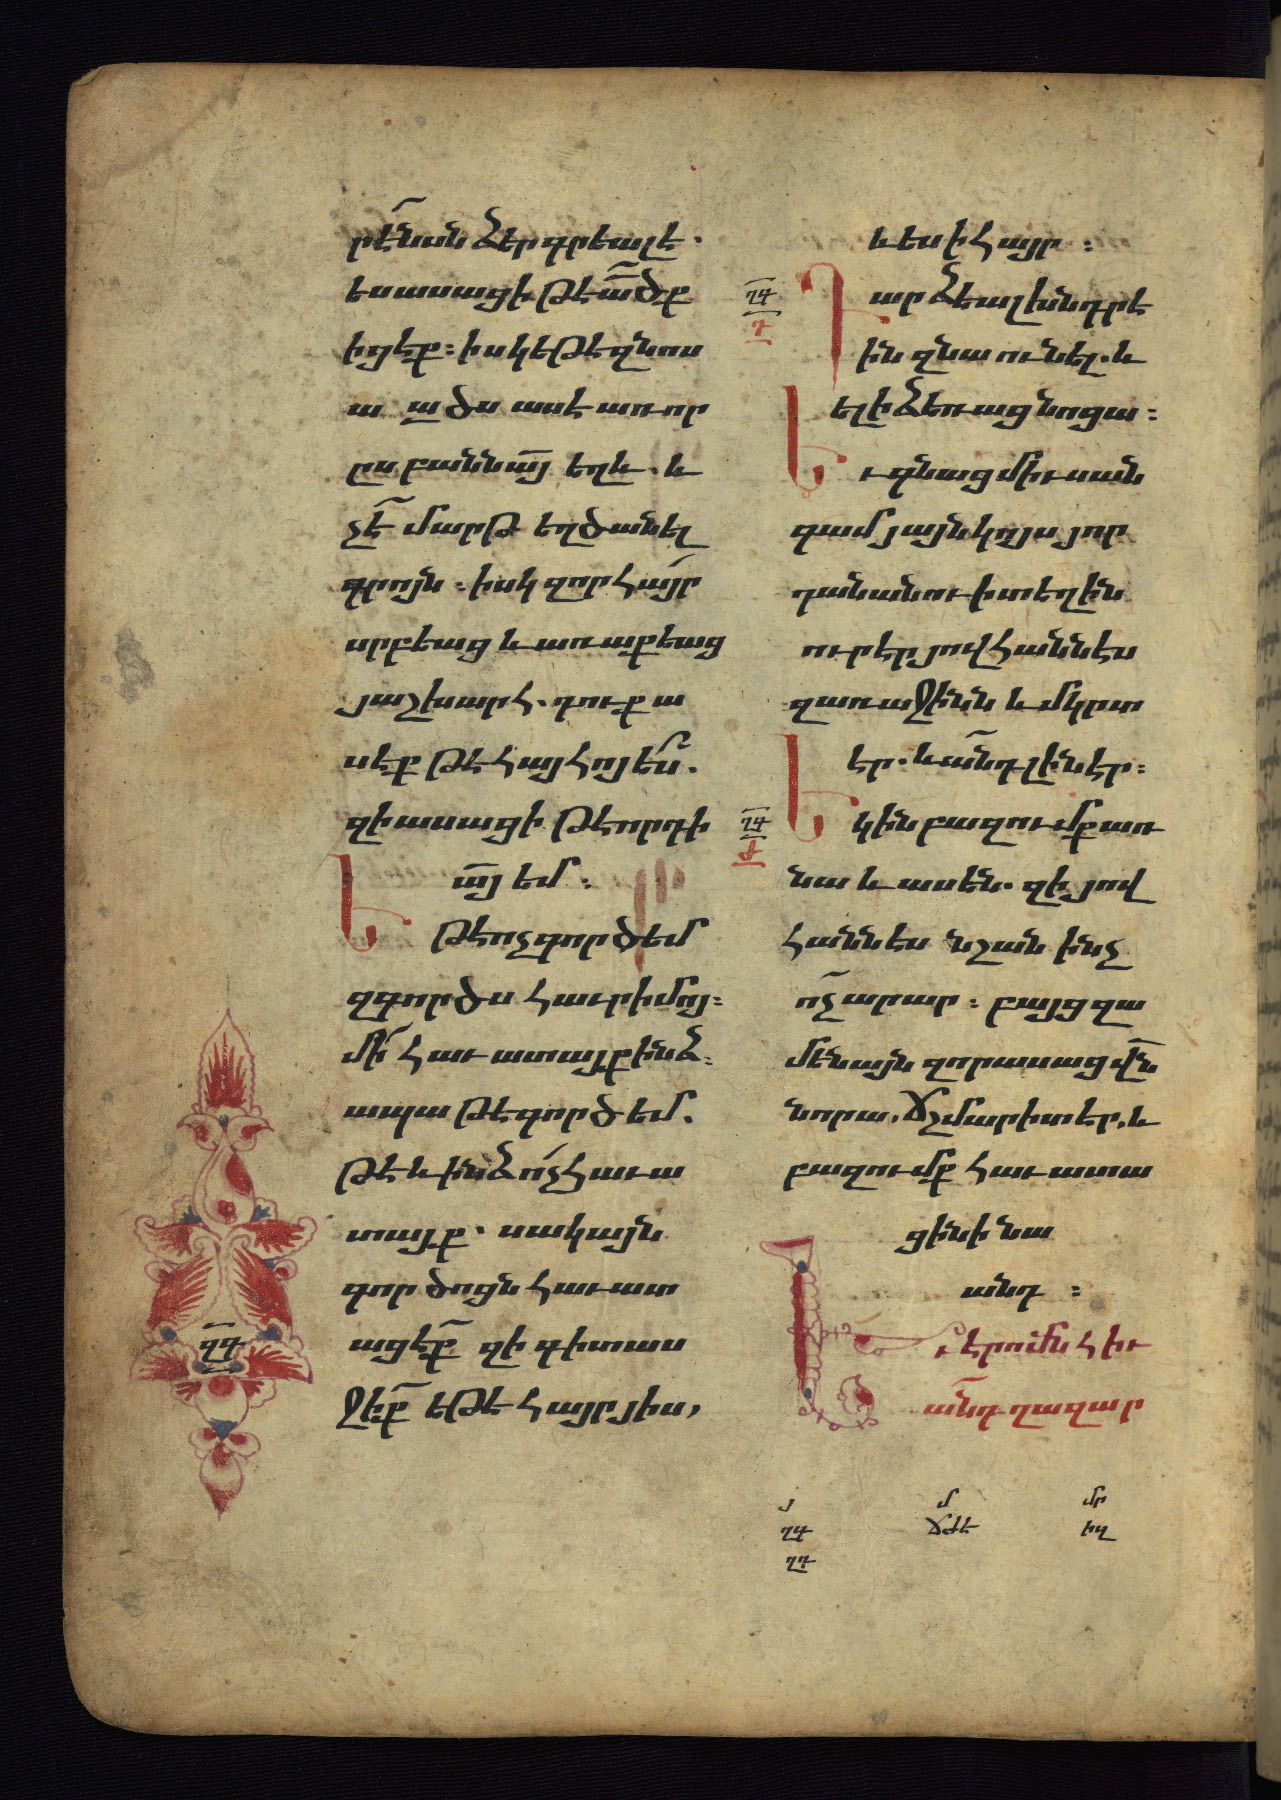 րէնսն ձեր գրեալ է.
ես ասացի թէ ա՟ծք
իցէք։ իսկ եթէ զնոս
ա ա՟ծս ասէ առ որ
ըս բանն ա՟յ եղև. և
չէ՟ մարթ եղծանել
գրոյն։ իսկ զոր հայր
սրբեաց և առաքեաց
յաշխարհ. դուք ա
սէք թէ հայհոյես.
զի ասացի թէ որդի
ա՟յ եմ։
Եթէ ոչ գործեմ
զգործս հաւր իմոյ։
մի՛ հաւատայք ինձ։
ապա թէ գործեմ.
թէ և ինձ ոչ հաւա
տայք. սակայն
գործոցն հաւատ
ացէք զի գիտաս
ջիք եթէ հայր յիս,
ղդ
և ես ի հայր։
ղգ
դ
Դարձեալ խնդրէ
ին զնա ունել. և
ել ի ձեռաց նոցա։
Եւ գնաց միւսան
գամ յայնկոյս յոր
դանանու ի տեղին
ուր էր յովհաննէս
զառաջինն և մկրտ
էր. և անդ լինէր։
ղդ
ժ
Եկին բազումք առ
նա և ասեն. զի յով
հաննէս նշան ինչ
ոչ արար։ բայց զա
մենայն զոր ասաց վ՟ն
նորա, ճշմարիտ էր, և
բազումք հաւատա
ցին ի նա
անդ։
Եւ էր ոմն հիւ
անդ ղազար
յ մ մր
ղգ ճժէ իզ
ղդ